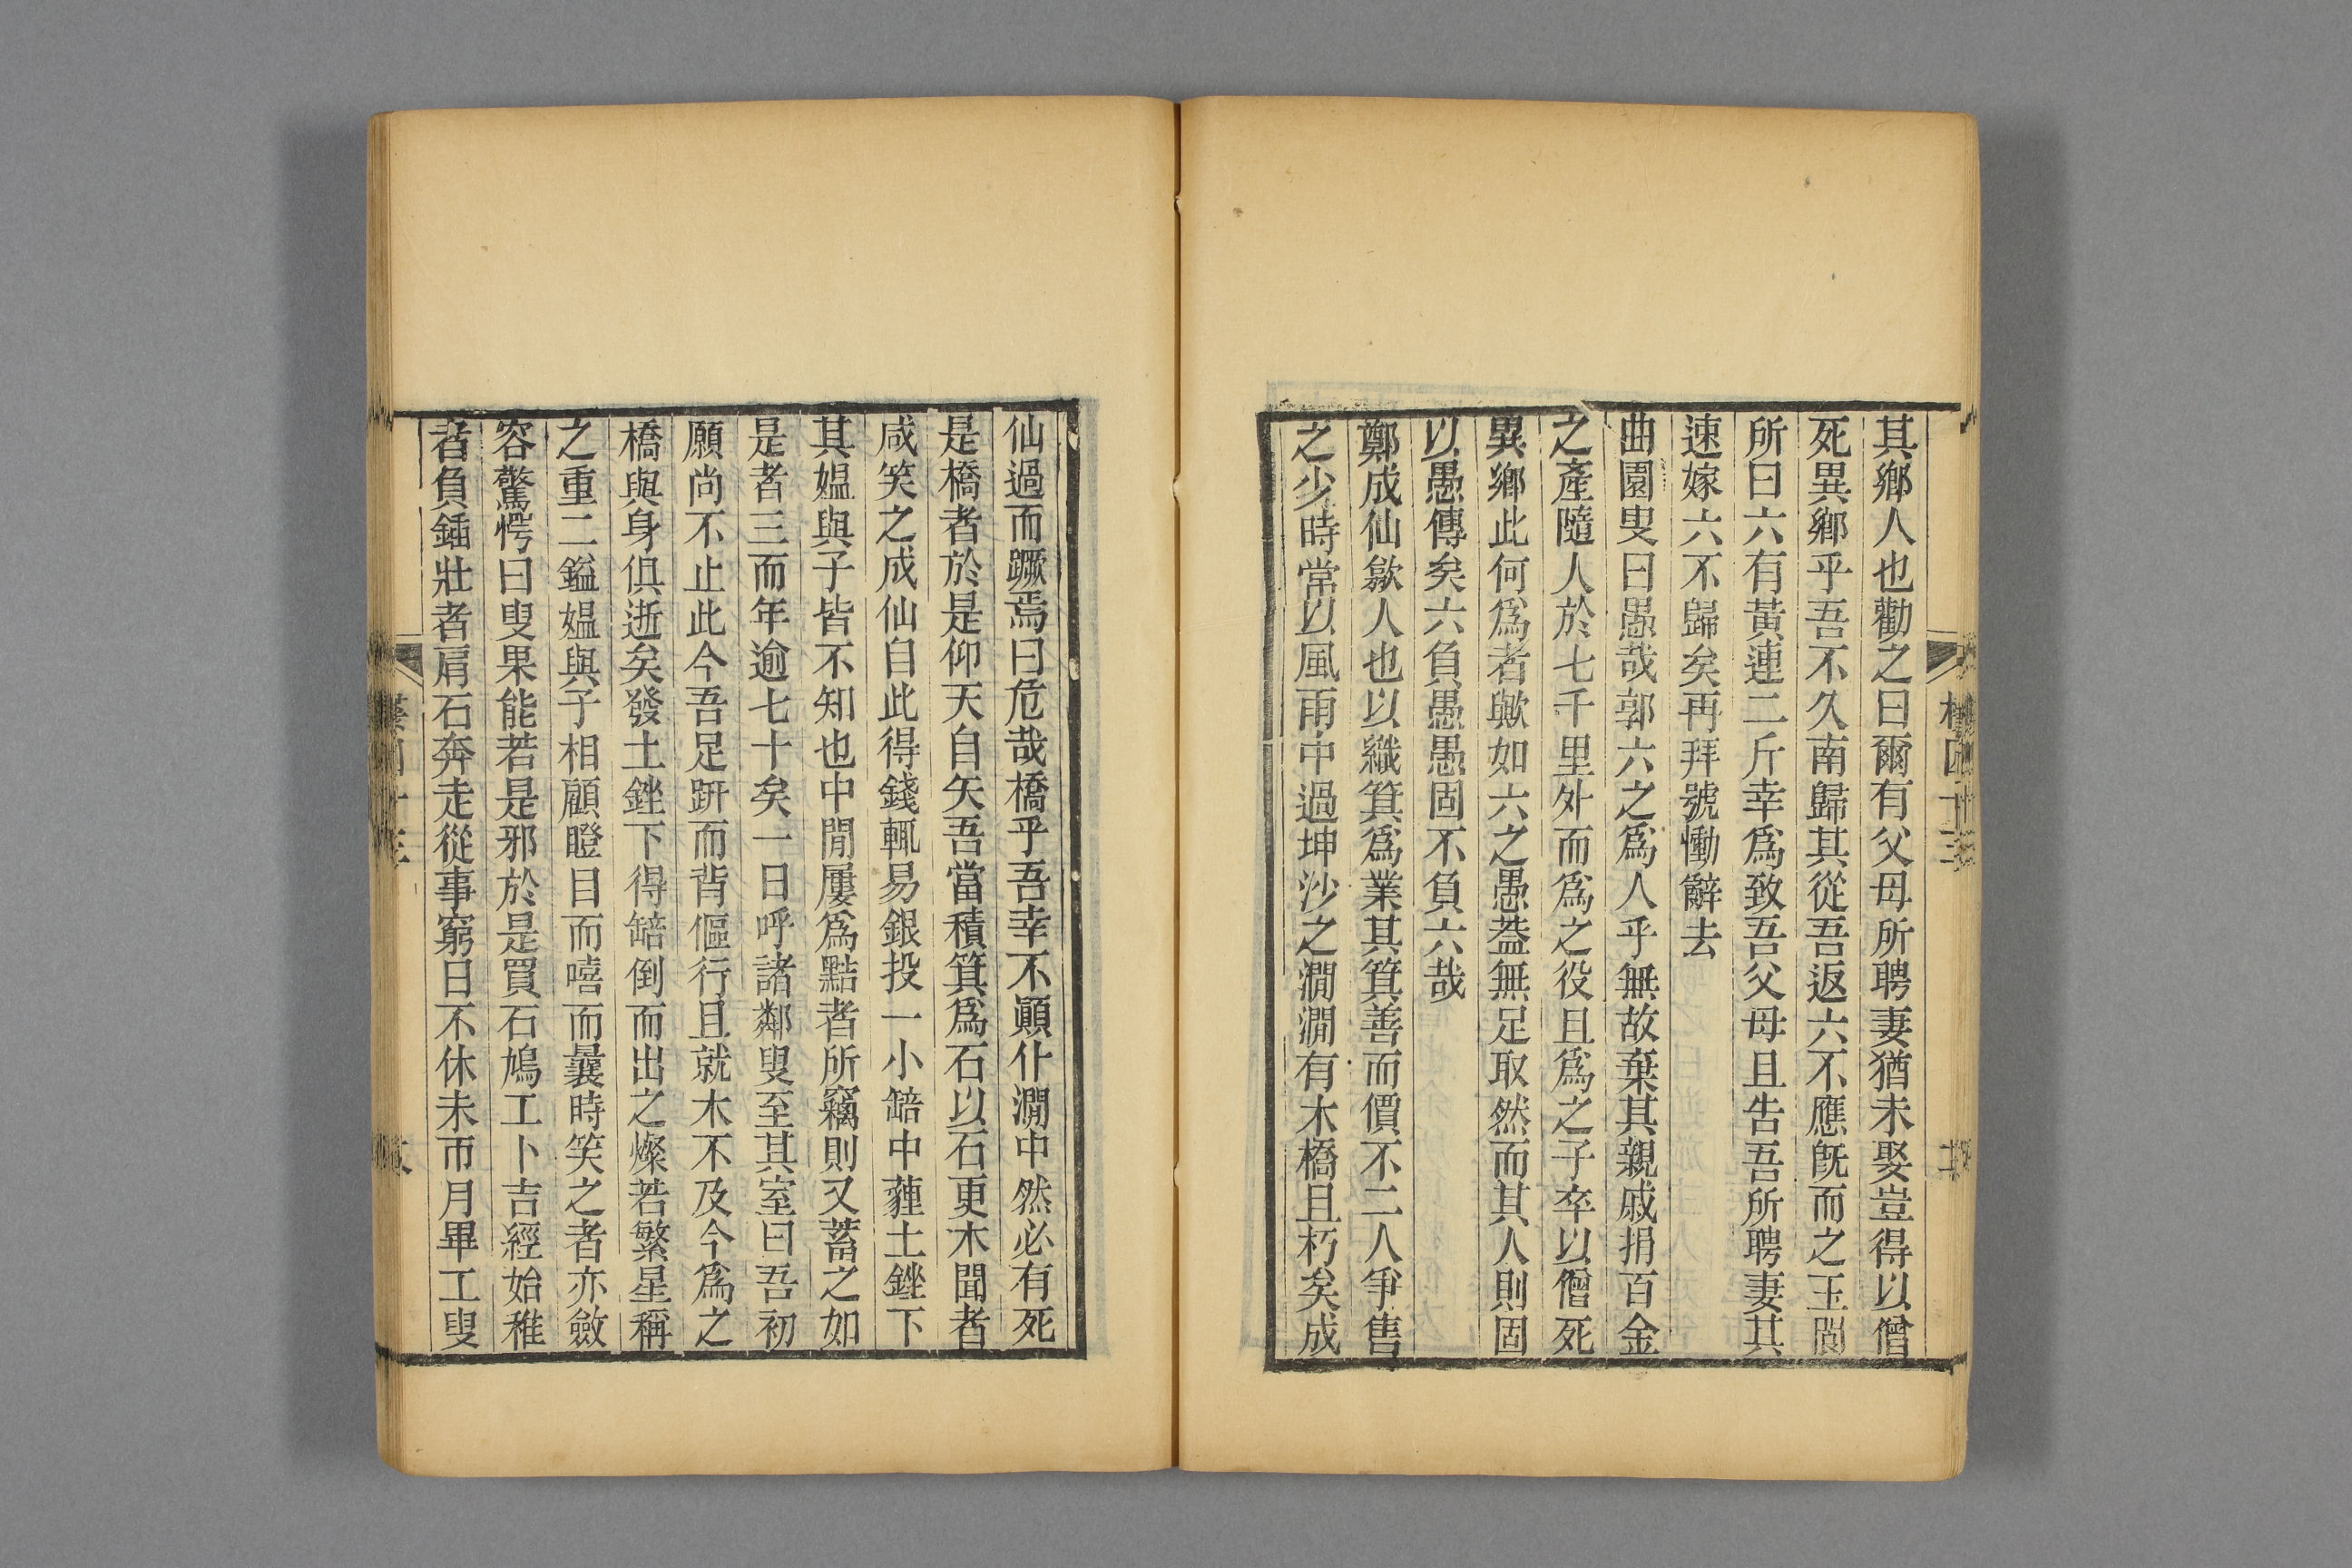 其鄉人也勸之曰爾有父母所聘妻猶未娶豈得以僧
死異鄉乎吾不久南歸其從吾返六不應旣而之玉閩
所曰六有黃連二斤幸爲致吾父母且告吾所聘妻其
速嫁六不歸矣再拜號慟辭去
曲園叟曰愚哉郭六之爲人乎無故棄其親戚捐百金
之產隨人於七千里外而爲之役且爲之子卒以僧死
異鄉此何爲者歟如六之愚葢無足取然而其人則固
以愚傳矣六負愚愚固不負六哉
鄭成仙歙人也以織箕爲業其箕善而價不二人爭售
之少時常以風雨中過坤沙之澗澗有木橋且朽矣成
仙過而蹶焉曰危哉橋乎吾幸不顚仆澗中然必有死
是橋者於是仰天自矢吾當積箕爲石以石更木聞者
咸笑之成仙自此得錢輒易銀投一小䤗中薶土銼下
其媼與子皆不知也中閒屢爲黠者所竊則又蓄之如
是者三而年逾七十矣一日呼諸鄰叟至其室曰吾初
願尚不止此今吾足趼而背傴行且就木不及今爲之
橋與身俱逝矣發土銼下得䤗倒而出之燦若繁星稱
之重二鎰媼與子相顧瞪目而嘻而曩時笑之者亦斂
容驚愕曰叟果能若是邪於是買石鳩工卜吉經始稚
者負鍤壯者肩石奔走從事窮日不休未帀月畢工叟